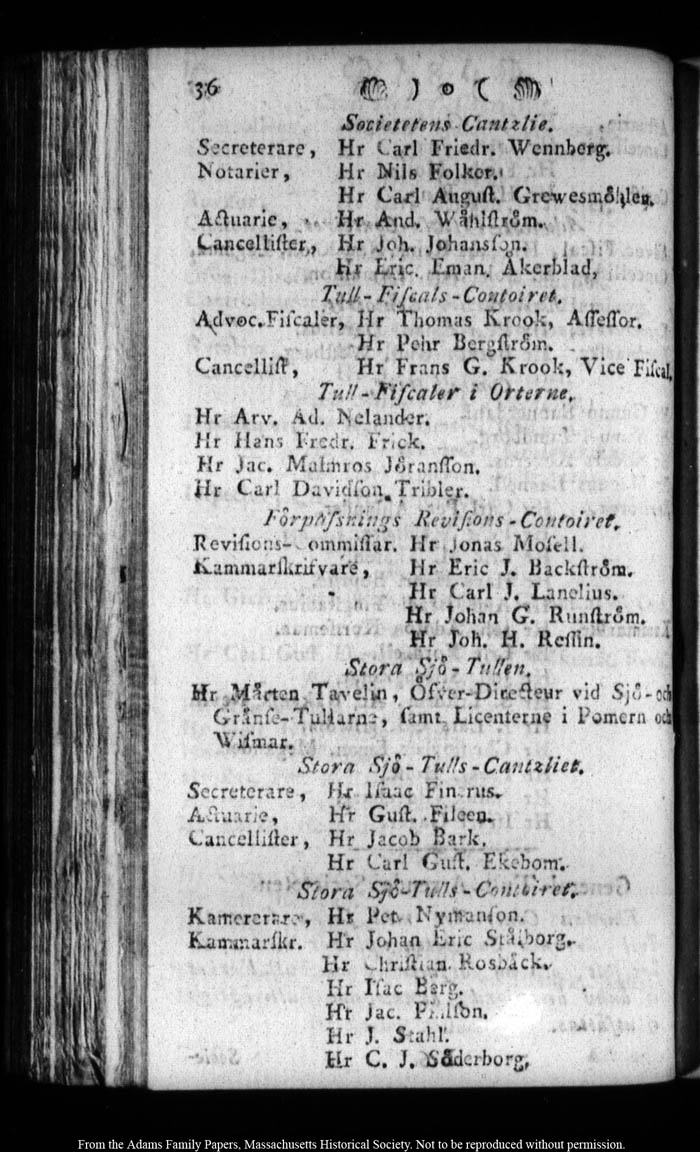 36 ) o (
Societetens Cantzlie.
Secreterare, Hr Carl Friedr. Wennberg.
Notarier, Hr Nils Folker.
Hr Carl August. Grewesmöhlen.
Actuarie, Hr And. Wåhlström.
Cancellister, Hr Joh. Johansson.
Hr Eric. Eman. Åkerblad,
Tull-Fiscals-Contoiret.
Advoc. Fiscaler, Hr Thomas Krook, Assessor.
Hr Pehr Bergström.
Cancellist, Hr Frans G. Krook, Vice Fiscal.
Tull-Fiscaler i Orterne.
Hr Arv. Ad. Nelander.
Hr Hans Fredr. Frick.
Hr Jac. Malmros Jöransson.
Hr Carl Davidson Tribler.
Förpassnings Revisions-Contoiret.
Revisions-Commissar. Hr Jonas Mosell.
Kammarskrifvare, Hr Eric J. Backström.
Hr Carl J. Lanelius.
Hr Johan G. Runström.
Hr Joh. H. Ressin.
Stora Sjö-Tullen.
Hr Mårten Tavelin, Öfver-Directeur vid Sjö-och
Gränse-Tullarne, samt Licenterne i Pomern och
Wismar.
Stora Sjö-Tulls-Cantzliet.
Secreterare, Hr Isaac
Actuarie, Hr Gust. Fileen.
Cancellister, Hr Jacob Bark.
Hr Carl Gust. Ekebom.
Stora Sjö-Tulls-Contoiret.
Kamererare, Hr Pet. Nymanson.
Kammarskr. Hr Johan Eric Stålborg.
Hr Christian Rosbäck.
Hr Isac Berg.
Hr Jac.
Hr J. Stahl.
Hr C. J. Söderborg,
From the Adams Family Papers, Massachusetts Historical Society. Not to be reproduced without permission.